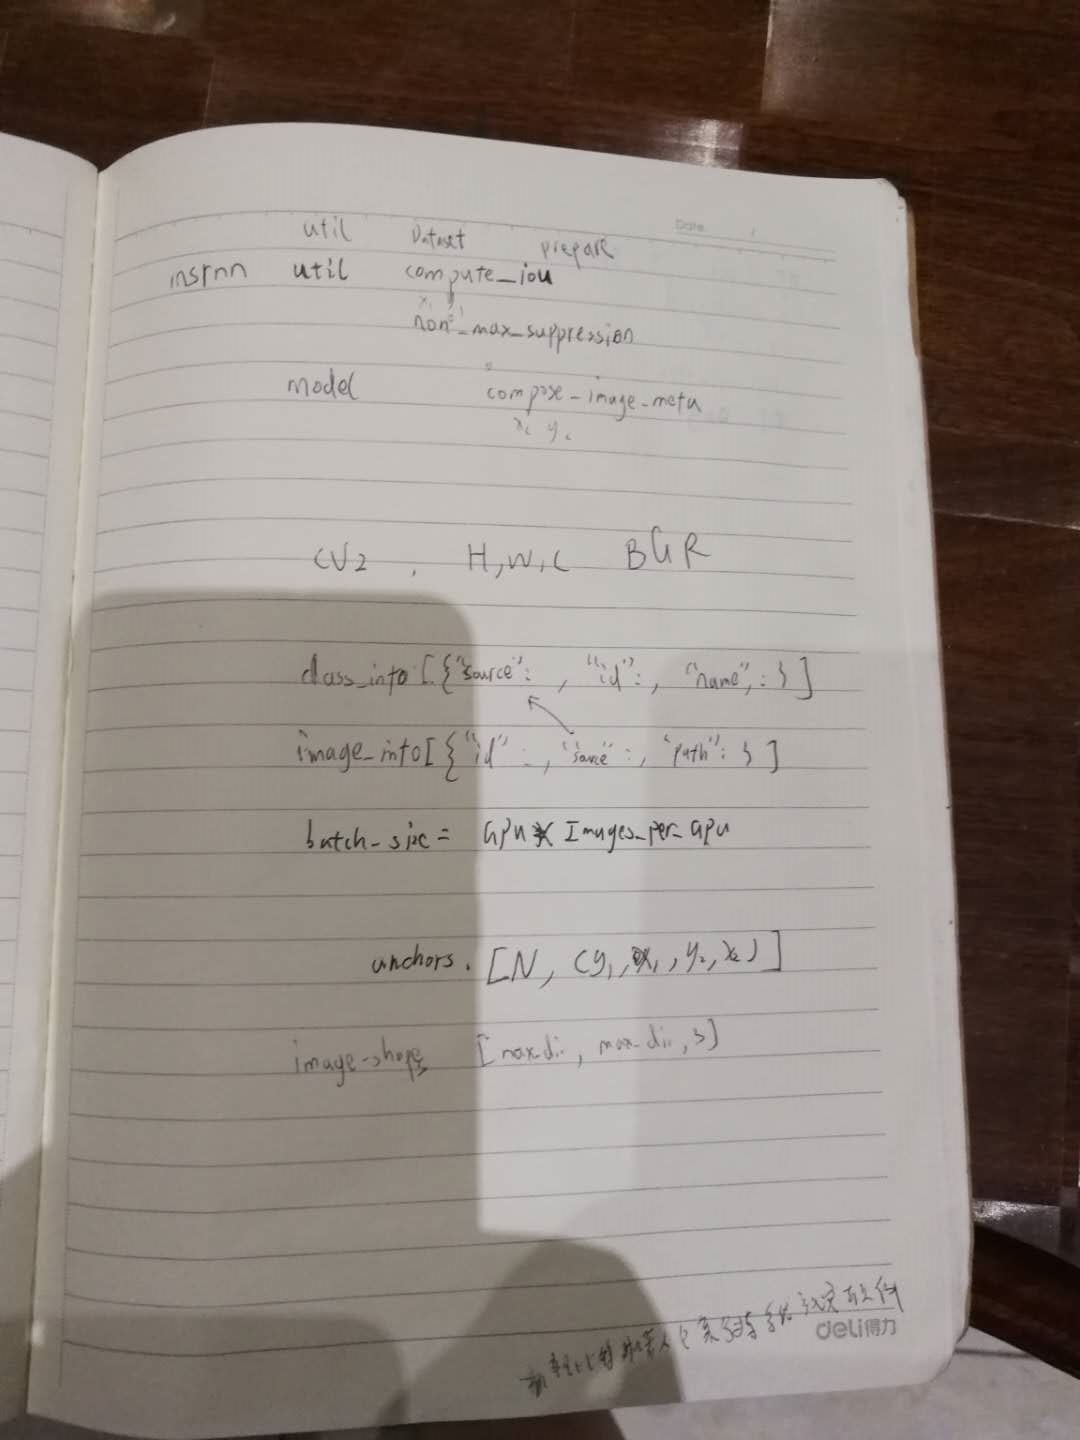 Date.
util Dataset prepare
util compute_iou
x1 y1
non_max_suppression
model compose-image-meta
CV2, H,W,C BGR
class_info [{"source": , "id":, "name",: }]
image_info[{"id" :, "source":, "path": }]
batch-size = GPU * Images_per_GPU
anchors. [N, (y1,x1,y2,x2)]
image-shape [max-dim, max-dim, 3]
deli得力